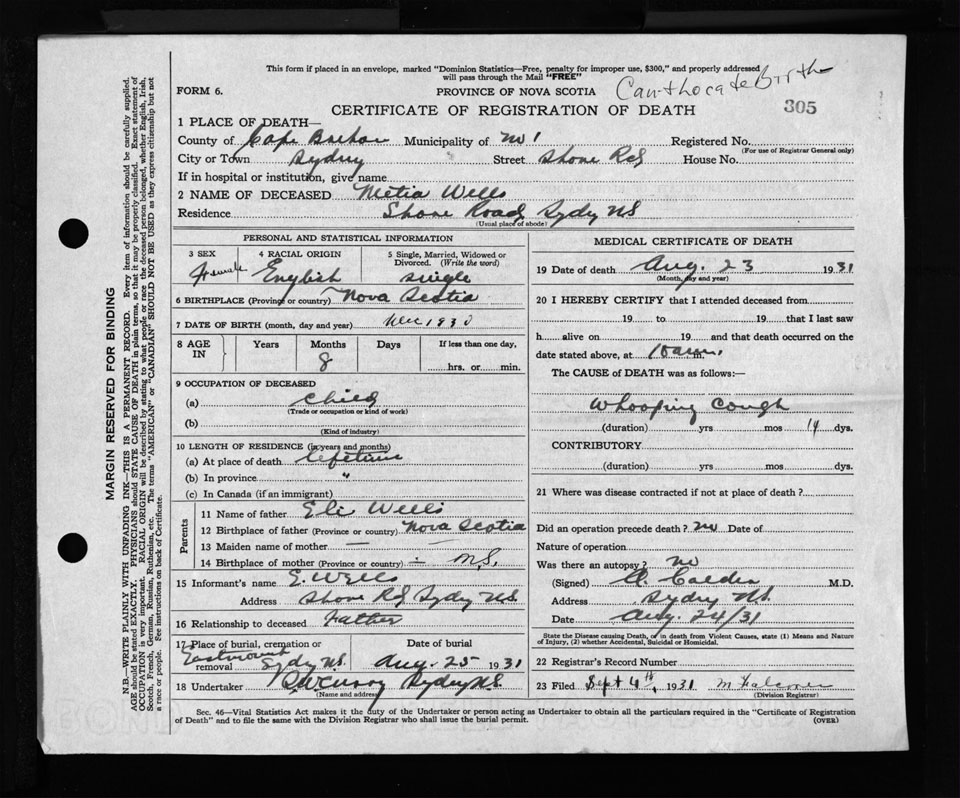 This form if placed in an envelope, marked "Dominion Statistics—Free, penalty for improper use, $300," and properly addressed
will pass through the Mail "FREE"
FORM 6. PROVINCE OF NOVA SCOTIA Can't locate Birth
CERTIFICATE OF REGISTRATION OF DEATH 305
1 PLACE OF DEATH—
County of Cape Breton Municipality of No 1 Registered No.
(For use of Registrar General only)
City or Town Sydney Street Shore Rd House No.
If in hospital or institution, give name
2 NAME OF DECEASED Metia Wells
Residence Shore Road Sydy NS
(Usual place of abode)
PERSONAL AND STATISTICAL INFORMATION
3 SEX 4 RACIAL ORIGIN 5 Single, Married, Widowed or
Divorced. (Write the word)
Female English single
6 BIRTHPLACE (Province or country) Nova Scotia
7 DATE OF BIRTH (month, day and year) Dec 1930
8 AGE IN Years Months Days If less than one day,
8 hrs. or min.
9 OCCUPATION OF DECEASED
(a) child
(Trade or occupation or kind of work)
(b)
(Kind of industry)
10 LENGTH OF RESIDENCE (in years and months)
(a) At place of death lifetime
(b) In province "
(c) In Canada (if an immigrant)
Parents
11 Name of father Eli Wells
12 Birthplace of father (Province or country) Nova Scotia
13 Maiden name of mother —
14 Birthplace of mother (Province or country) — N.S.
15 Informant's name E. Wells
Address Shore Rd Sydy NS.
16 Relationship to deceased Father
17 Place of burial, cremation or Date of burial
Eastmount
removal Sydy NS. Aug. 25 1931
18 Undertaker Sydney NS
(Name and address)
MEDICAL CERTIFICATE OF DEATH
19 Date of death Aug. 23 1931
(Month, day and year)
20 I HEREBY CERTIFY that I attended deceased from
19 to 19 that I last saw
h alive on 19 and that death occurred on the
date stated above, at 10 am. m.
The CAUSE of DEATH was as follows:—
Whooping Cough
(duration) yrs mos 14 dys.
CONTRIBUTORY
(duration) yrs mos dys.
21 Where was disease contracted if not at place of death?
Did an operation precede death? no Date of
Nature of operation
Was there an autopsy? no
(Signed) A. Calder M.D.
Address Sydny NS.
Date Aug. 24/31
State the Disease causing Death, or in death from Violent Causes, state (1) Means and Nature
of Injury, (2) whether Accidental, Suicidal or Homicidal.
22 Registrar's Record Number
23 Filed Sept 4th, 1931
(Division Registrar)
Sec. 46—Vital Statistics Act makes it the duty of the Undertaker or person acting as Undertaker to obtain all the particulars required in the "Certificate of Registration
of Death" and to file the same with the Division Registrar who shall issue the burial permit. (OVER)
MARGIN RESERVED FOR BINDING
N.B.—WRITE PLAINLY WITH UNFADING INK—THIS IS A PERMANENT RECORD. Every item of information should be carefully supplied.
AGE should be stated EXACTLY. PHYSICIANS should STATE CAUSE OF DEATH in plain terms, so that it may be properly classified. Exact statement of
OCCUPATION is very important. RACIAL ORIGIN will be described by stating to what people or race the deceased person belonged, whether English, Irish,
Scotch, French, German, Russian, Ruthenian, etc. The terms "AMERICAN" or "CANADIAN" SHOULD NOT BE USED as they express citizenship but not
a race or people. See instructions on back of Certificate.